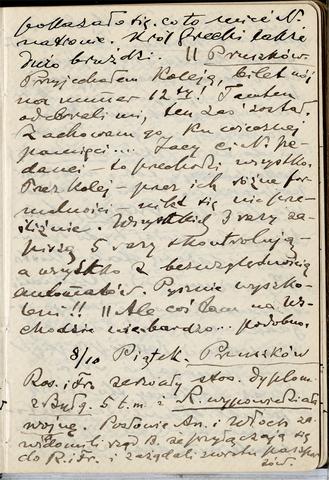 pokazało się, co to znieść N.
na tronie. Król grecki także
dużo bruździ. || Pruszków.
Przyjechałem Koleją, bilet mój
na numer 12 ty! Tamten
odebrali mi, ten zaś został.
Zachowam go, ku wiecznej
pamięci.... Jacy ci N.
danci - to przechodzi wszystko.
Przez kolej - przez ich różne for-
malności - nikt się nie prze-
śliźnie. Wszystko 3 razy za-
piszą 5 razy skontrolują -
a wszystko z bezwzględnością
automatów. Pysznie wyszko-
leni!! || Ale coś tam na W-
chodzie nie bardzo... podobno.
8/10 Piątek. Pruszków
Ros. i Fr. zerwały stos. dyplom.
z Bułg. 5 t. m. i R. wypowiedziała
wojnę. Posłowie An. i Włoch za-
wiadomili rząd B. że przyłączają się
do R. i Fr. i zażądali zwrotu paszpor-
tów.